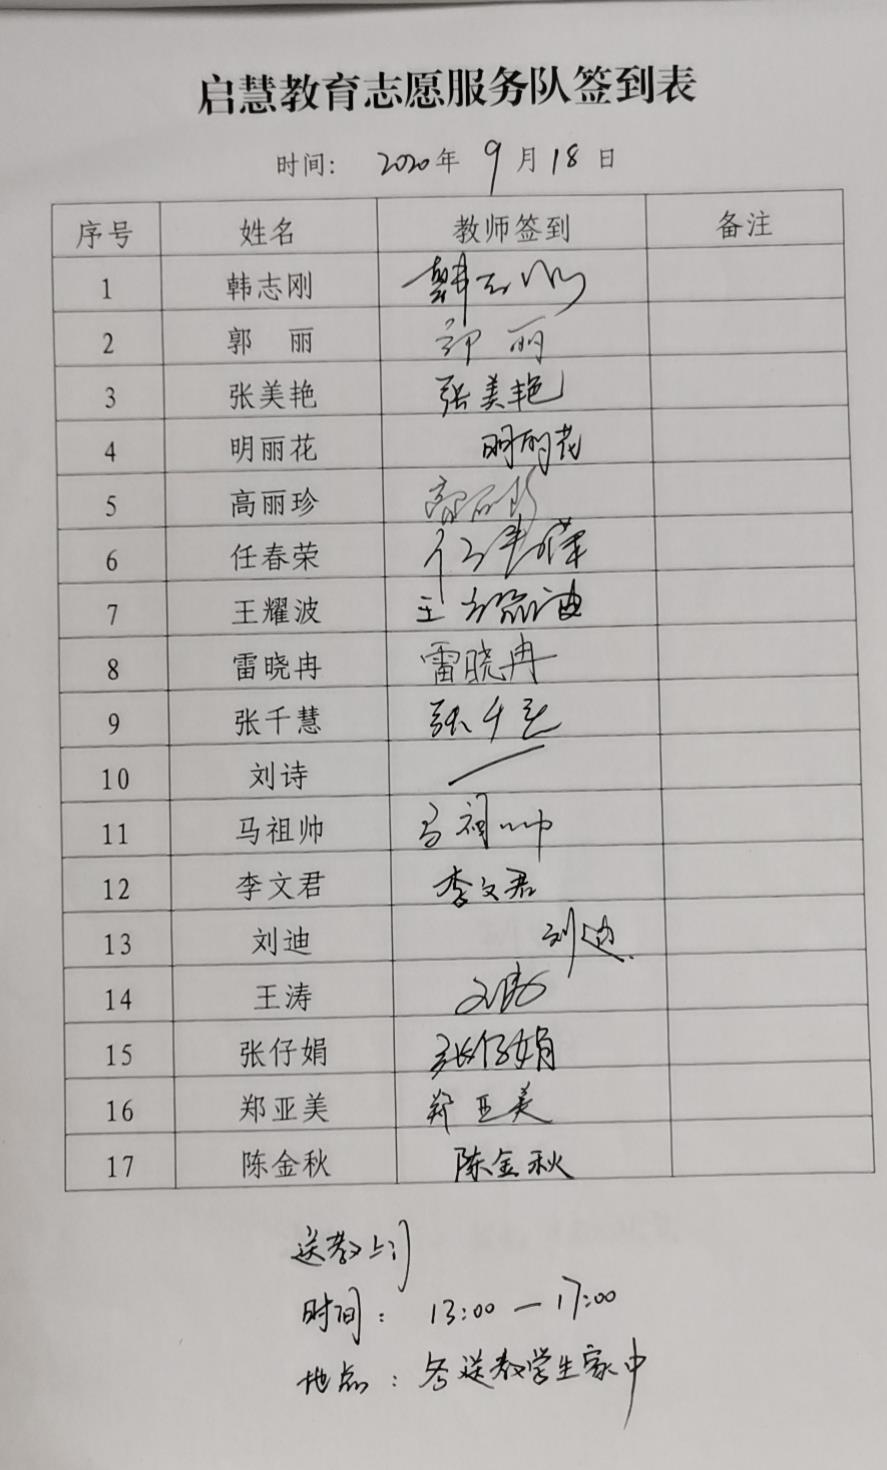 启慧教育志愿服务队签到表
时间: 2020年 9 月 18 日
序号 姓名 教师签到 备注
1 韩志刚 韩志刚
2 郭 丽 郭丽
3 张美艳 张美艳
4 明丽花 明丽花
5 高丽珍 高丽珍
6 任春荣 任春荣
7 王耀波 王
8 雷晓冉 雷晓冉
9 张千慧 张千
10 刘诗
11 马祖帅 马祖帅
12 李文君 李文君
13 刘迪 刘迪
14 王涛
15 张仔娟 张仔娟
16 郑亚美 郑亚美
17 陈金秋 陈金秋
送教上门
时间: 13:00—17:00
地点: 各送教学生家中